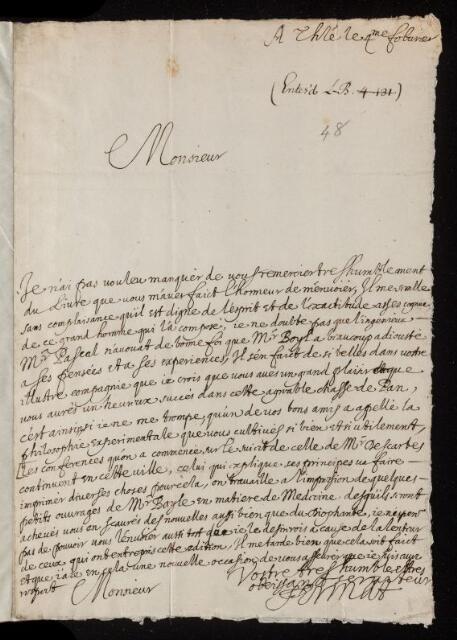 A Thlé le 4me febvrier
(Enter'd L.B. 4-181)
48
Monsieur
Je n'ai pas voulu manquer de vous remercier tres humblement
du Livre que vous m'avés fait l'honneur de m'envoier, Il me semble
sans complaisance qu'il est digne de l'esprit et de l'exactitude assés cognue
de ce grand homme qui l'a composé, ie ne doute pas que l'ingenieux
Mr. Pascal n'avouat de bonne foi que Mr. Boyl a beaucoup adiousté
a ses pensées et a ses experiences, Il s'en fait de si belles dans vostre
illustre compagnie que ie crois que vous avés un grand plaisir et que
vous aurés un heureux succés dans cette agreable chasse de Pan,
c'est ainsi si ie ne me trompe, qu'un de vos bons amis a appellé la
philosophie experimentale que vous cultivés si bien et si utilement,
Les conferences qu'on a commencé sur le suiet de celle de Mr. Descartes
continuent en cette ville, celui qui explique ses principes va faire
imprimer diverses choses pour cela, on travaille a l'impression de quelques
petits ouvrages de Mr. Boyle en matiere de Medecine, des qu'ils seront
achevés vous en scaurés des nouvelles aussi bien que du Diophante, ie
pas de pouvoir vous l'envoier aussi tost que ie le desirerois a cause de la lenteur
de ceux qui ont entrepris cette edition, Il me tarde bien que cela soit fait
et que i'aie en cela une nouvelle occasion de vous asseurer que ie suis avec
respect
Monsieur
Vostre tres humble et tres
obeissant serviteur
Fermat